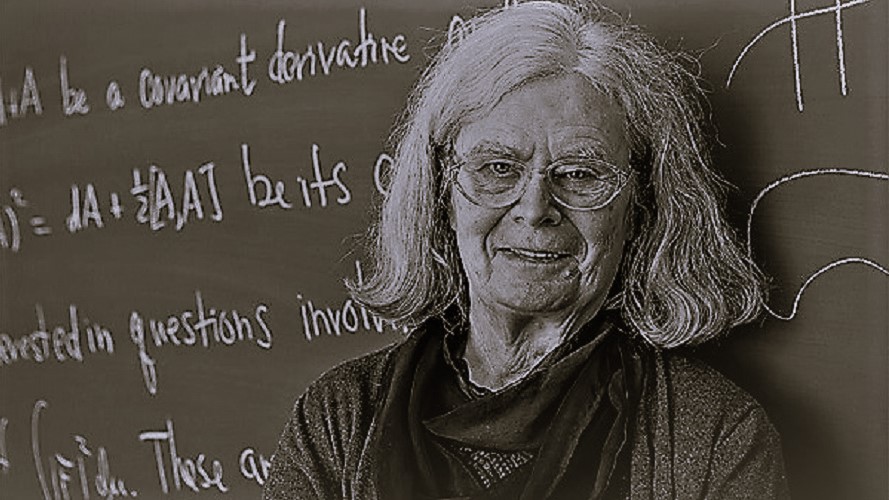 +A be a covariant derivative
)² = dA + ½[A,A] be its
erested in questions involv
∫|F|² dμ. These ar